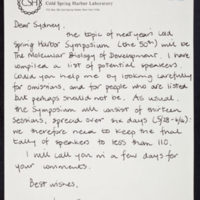 CSH
Cold Spring Harbor Laboratory
Dear Sydney,
the topic of next years Cold
Spring Harbor Symposium (the 50th) will be
The Molecular Biology of Development. I have
compiled a list of potential speakers.
Could you help me by looking carefully
for omissions, and for people who are listed
but perhaps should not be. As usual,
the Symposium will consist of thirteen
Sessions, spread over six days (5/28-6/4);
we therefore need to keep the final
tally of speakers to less than 110.
I will call you in a few days for
your comments.
Best wishes,